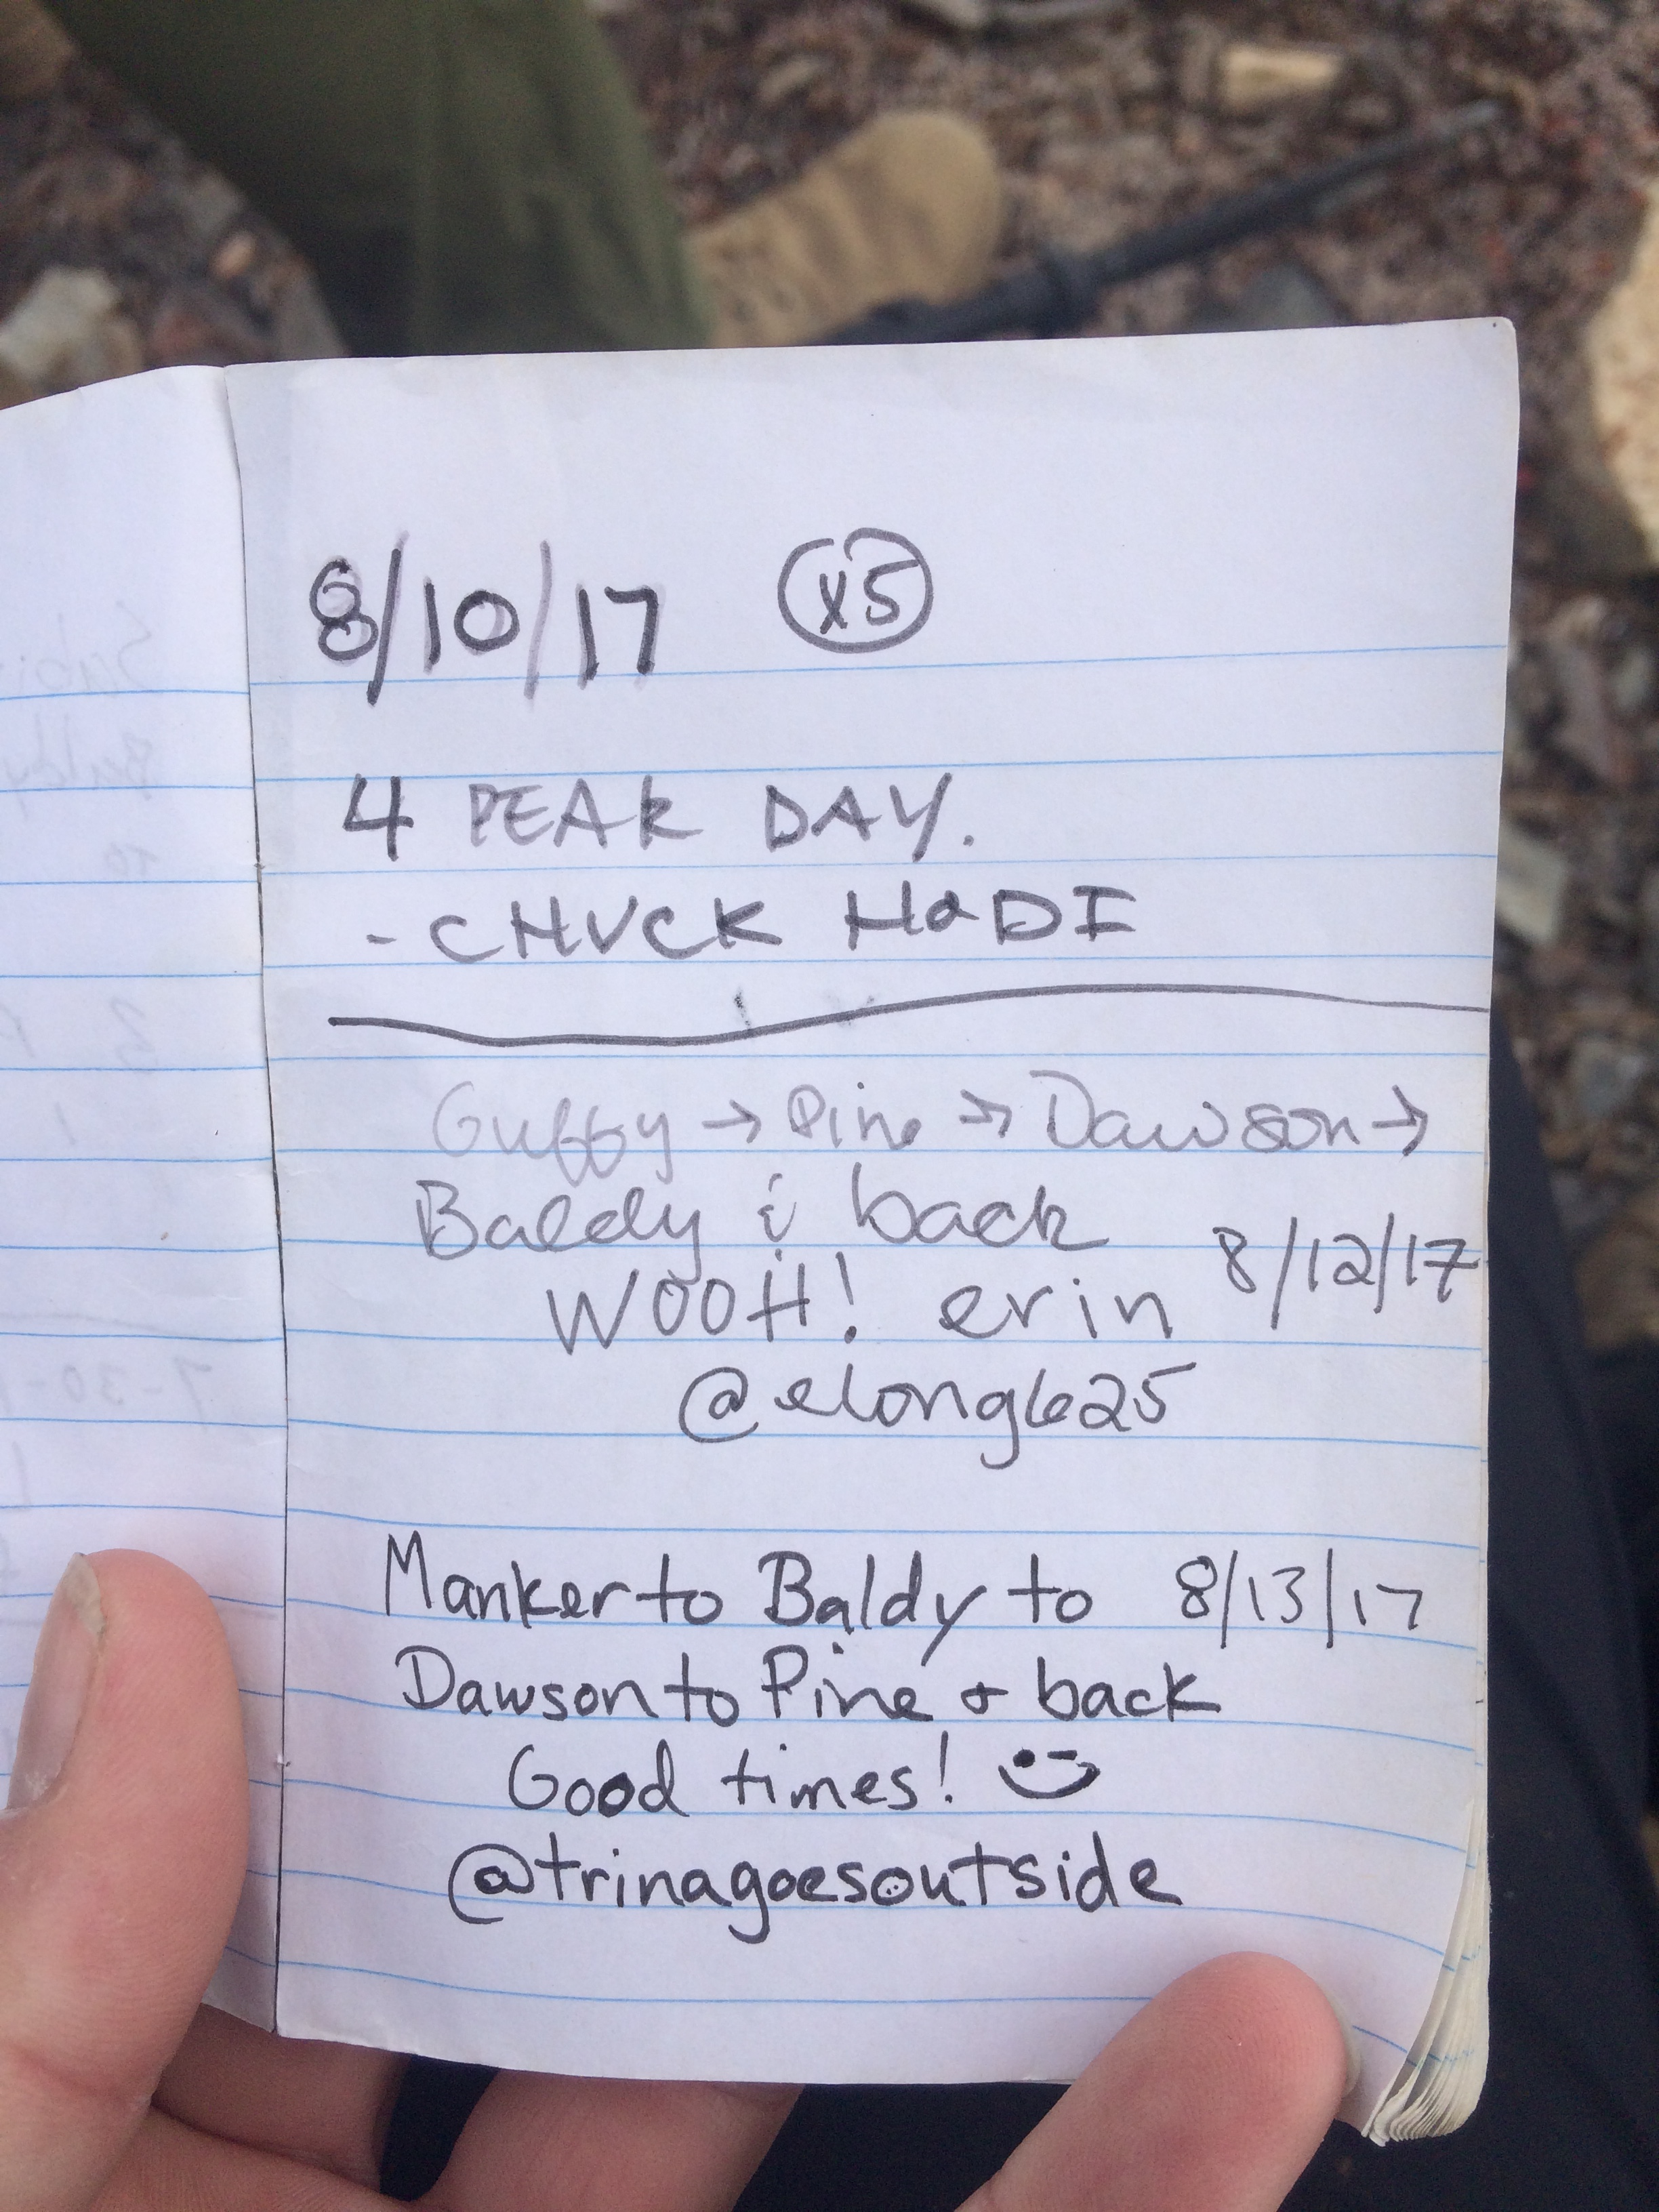 8/10/17 x5
4 PEAK DAY.
- CHUCK HODI
Guffy → Pine → Dawson →
Baldy & back
WOOH! erin 8/12/17
@elong625
Manker to Baldy to 8/13/17
Dawson to Pine & back
Good times!
@trinagoesoutside